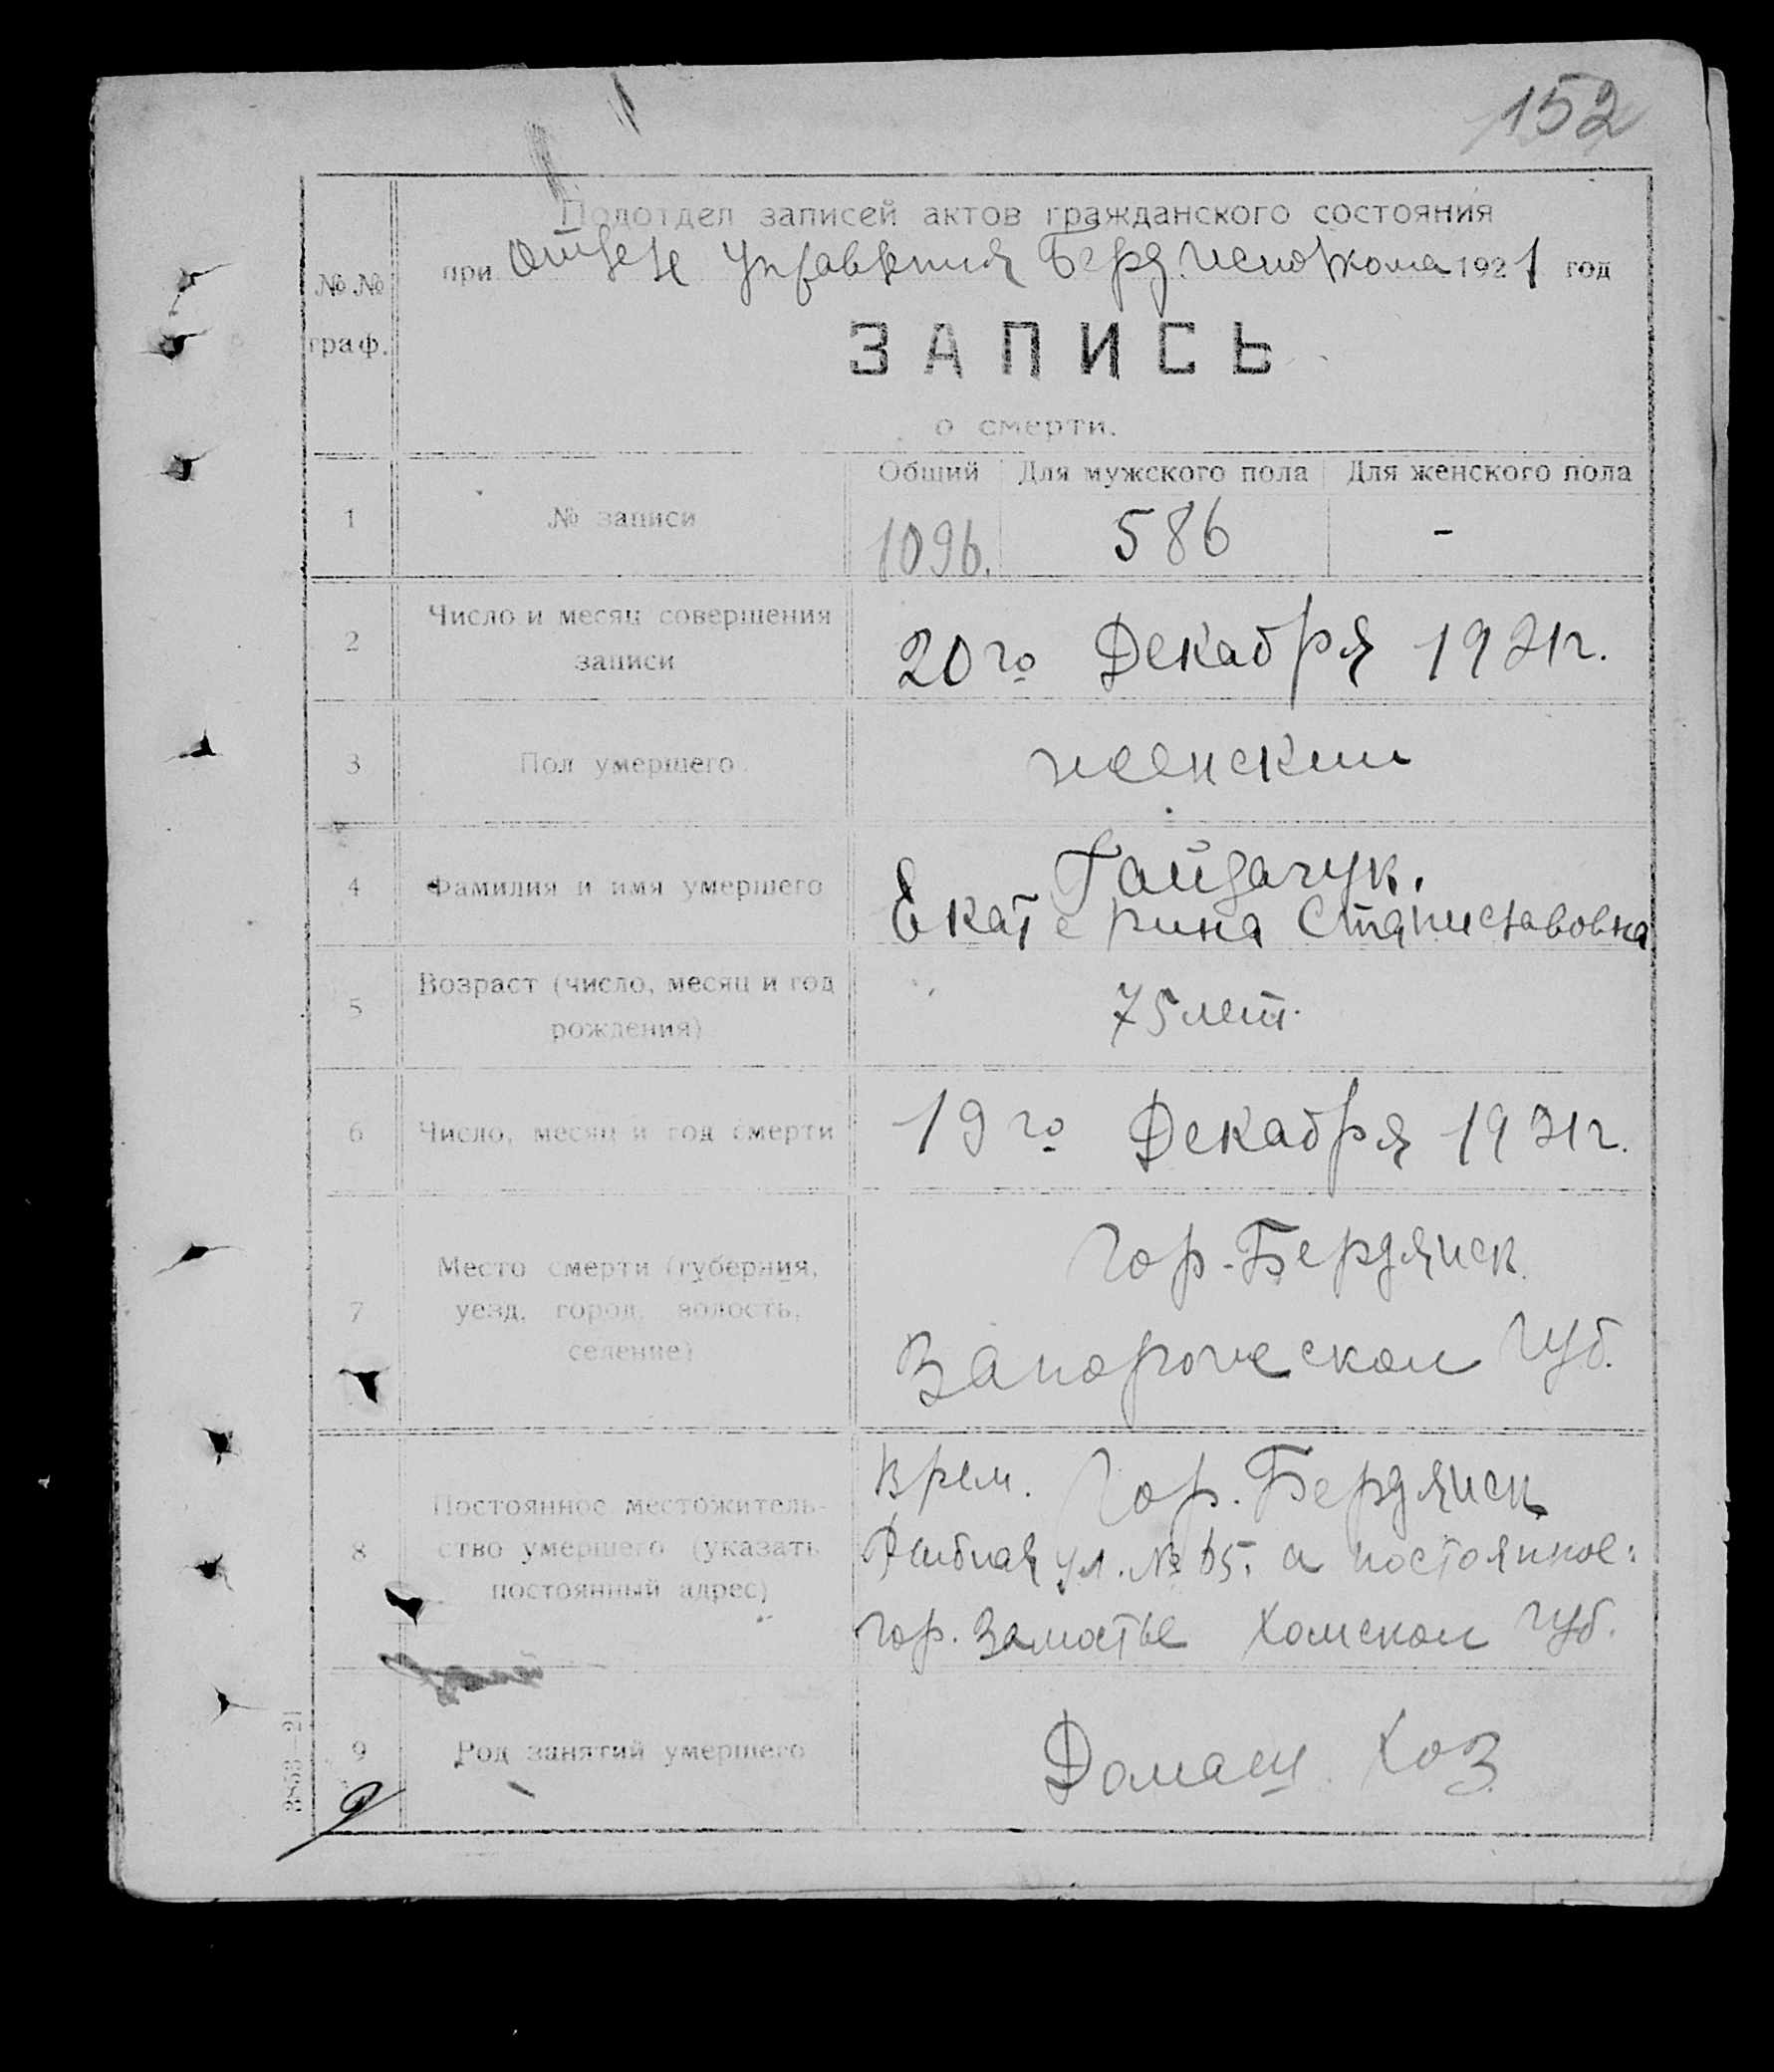 152
Подотдел записей актов гражданского состояния
при Отделе Управления Берд. Исполкома 1921 год
№№
граф.
ЗАПИСЬ
о смерти.
Общий Для мужского пола Для женского пола
1 № записи 1096. 586 -
2 Число и месяц совершения
записи
20го Декабря 1921г.
3 Пол умершего женский
4 Фамилия и имя умершего
Гайдачук.
Екатерина Станиславовна
5 Возраст (число, месяц и год
рождения)
75 лет.
6 Число, месяц и год смерти 19го Декабря 1921г.
7 Место смерти (губерния,
уезд, город, волость,
селение)
Гор. Бердянск
Запорожской Губ.
8 Постоянное местожитель-
ство умершего (указать
постоянный адрес)
Врем. Гор. Бердянск
ул. № 65. а постоянное:
гор. Замостье Холмской Губ.
9 Род занятий умершего Домаш. Хоз.
3853—21